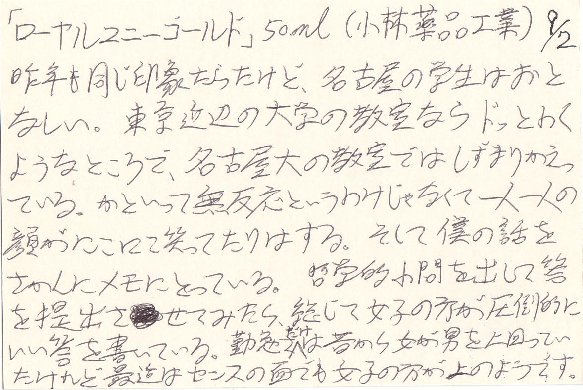 「ローヤルユニーゴールド」50ml (小林薬品工業) 9/2
昨年も同じ印象だったけど、名古屋の学生はおと
なしい。東京近辺の大学の教室ならドッとわく
ようなところで、名古屋大の教室ではしずまりかえっ
ている。かといって無反応というわけじゃなくて一人一人の
顔がにこにこ笑ってたりはする。そして僕の話を
さかんにメモにとっている。哲学的小問を出して答
を提出させてみたら、総じて女子の方が圧倒的に
いい答を書いている。勤勉さだけは昔から女が男を上回ってい
たけれど最近はセンスの面でも女子の方が上のようです。